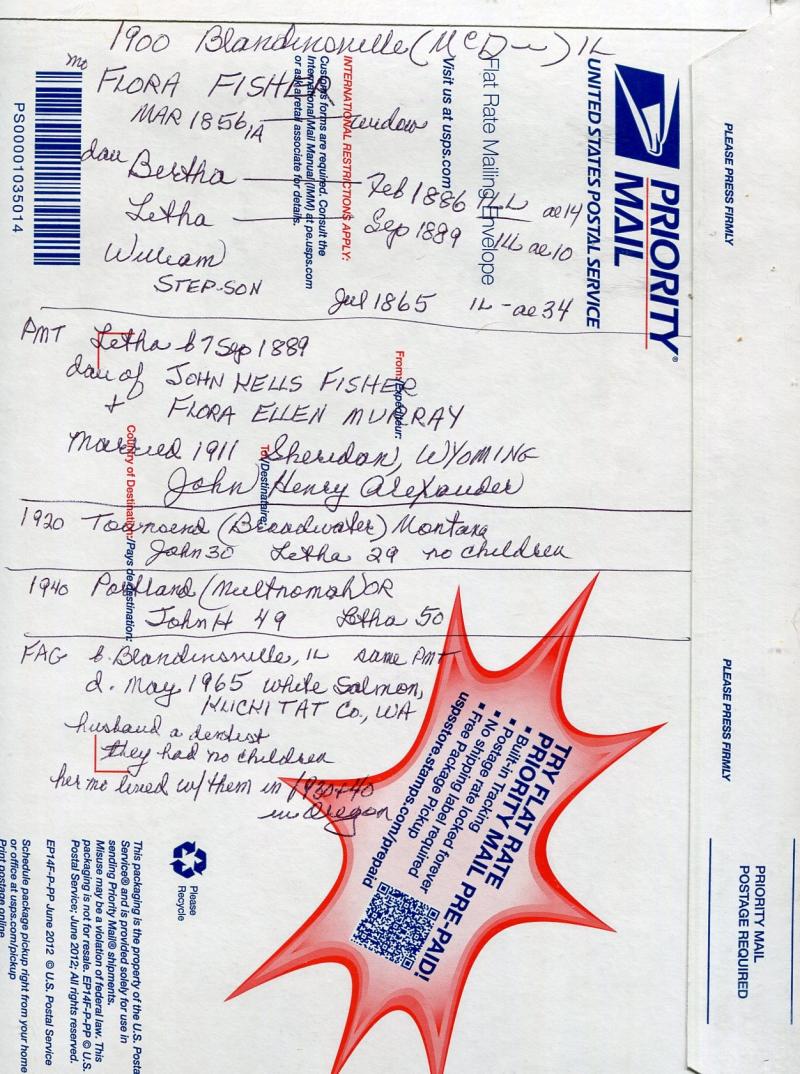 1900 Blandinsville (McD) IL
mo
FLORA FISHER
MAR 1856 IA widow
dau Bertha Feb 1886 ILL ae 14
Letha Sep 1889 ILL ae 10
William
STEP-SON Jul 1865 IL - ae 34
PMT Letha b 7 Sep 1889
dau of JOHN WELLS FISHER
+ FLORA ELLEN MURRAY
married 1911 Sheridan, WYOMING
John Henry Alexander
1920 Townsend (Broadwater) Montana
John 30 Letha 29 no children
1940 Portland (Multnomah) OR
John H 49 Letha 50
FAG b. Blandinsville, IL same PMT
d. May 1965 White Salmon,
KLICHITAT Co., WA
husband a dentist
they had no children
her mo lived w/ them in 1930 + 40
in Oregon
PS00001035014
Customs forms are required. Consult the
International Mail Manual (IMM) at pe.usps.com
or ask a retail associate for details.
INTERNATIONAL RESTRICTIONS APPLY:
Visit us at usps.com
Flat Rate Mailing Envelope
UNITED STATES POSTAL SERVICE
PRIORITY®
MAIL
PLEASE PRESS FIRMLY
From:/Expéditeur:
To:/Destinataire:
Country of Destination:/Pays de destination:
TRY FLAT RATE
PRIORITY MAIL PRE-PAID!
▪ Built-in Tracking
▪ Postage rate locked forever
▪ No shipping label required
▪ Free Package Pickup
uspsstore.stamps.com/prepaid
PLEASE PRESS FIRMLY
PRIORITY MAIL
POSTAGE REQUIRED
Please
Recycle
This packaging is the property of the U.S. Posta
Service® and is provided solely for use in
sending Priority Mail® shipments.
Misuse may be a violation of federal law. This
packaging is not for resale. EP14F-P-PP © U.S.
Postal Service; June 2012; All rights reserved.
EP14F-P-PP June 2012 © U.S. Postal Service
Schedule package pickup right from your home
or office at usps.com/pickup
Print postage online